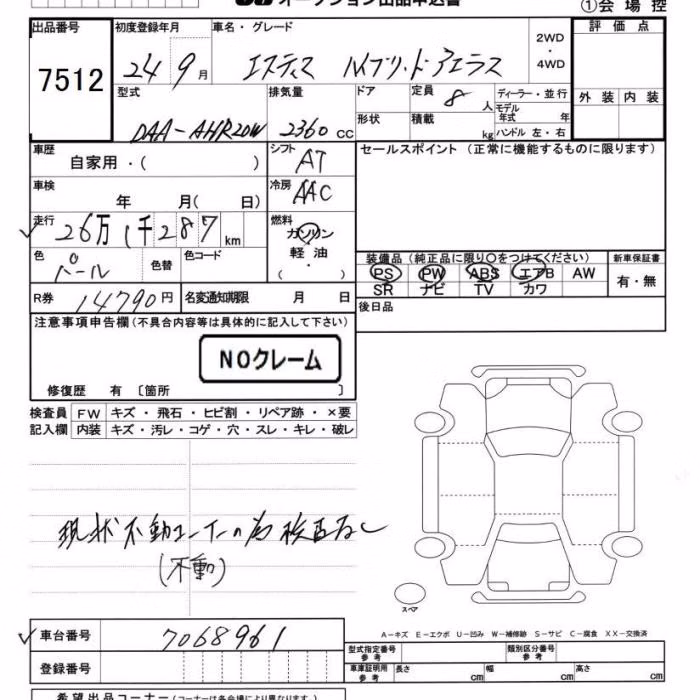 オークション出品申込書
①会場控
出品番号 初度登録年月 車名・グレード 2WD・4WD 評価点
7512 24 9月 エスティマ ハイブリッド アエラス
型式 排気量 ドア 定員 8人 ディーラー・並行 外装 内装
DAA-AHR20W 2360cc 形状 積載 kg モデル年式 年 ハンドル 左・右
車歴 自家用・( ) シフト AT セールスポイント (正常に機能するものに限ります)
車検 年 月 ( 日) 冷房 AAC
走行 26万1千287km 燃料 ガソリン 軽油 ( ・ )
色 パール 色替 色コード 装備品 (純正品に限り○をつけてください) 新車保証書
PS PW ABS エアB AW 有・無
SR ナビ TV カワ
R券 14790円 名変通知期限 月 日 後日品
注意事項申告欄 (不具合内容等は具体的に記入して下さい)
NOクレーム
修復歴 有 〔箇所 〕
検査員 FW キズ・飛石・ヒビ割・リペア跡・×要
記入欄 内装 キズ・汚レ・コゲ・穴・スレ・キレ・破レ
現状不動コーナーの為検査なし
(不動)
スペア
車台番号 7068961
A-キズ E-エクボ U-凹み W-補修跡 S-サビ C-腐食 XX-交換済
登録番号 型式指定番号 参考 類別区分番号 参考
車庫証明用 参考 長さ cm 幅 cm 高さ cm
希望出品コーナー (コーナーは各会場により異なります。)